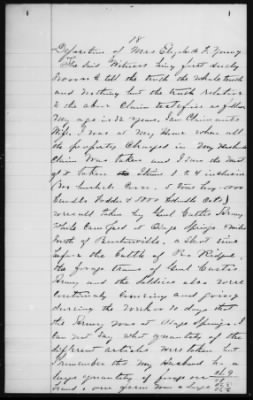 18
Deposition of Mrs Elizabeth F. Young
The said Witness being first duly
sworn to tell the truth the whole truth
and nothing but the truth relative
to the above Claim testifies as follows
My age is 32 years. I am Claimants
Wife. I was at My Home when all
the property Charged in My Husbands
Claim was taken and I saw the most
of it taken Items 1 2 & 4 inclusive
5 tons hay
Bundles Fodder & Sheafs Oats
were all taken by Genl Curtis Army
While Camped at Osage Springs
South of Bentonville, a short time
before the Battle of Pea Ridge,
the forage teams of Genl Curtis
Army and the Soldiers also were
Continualy Coming and going
during the week or 10 days that
the Army was at Osage Springs. I
Can not say what quantity of the
different articles were taken but
I remember that My Husband had a
large quantity of forage on
hand, our farm was a large